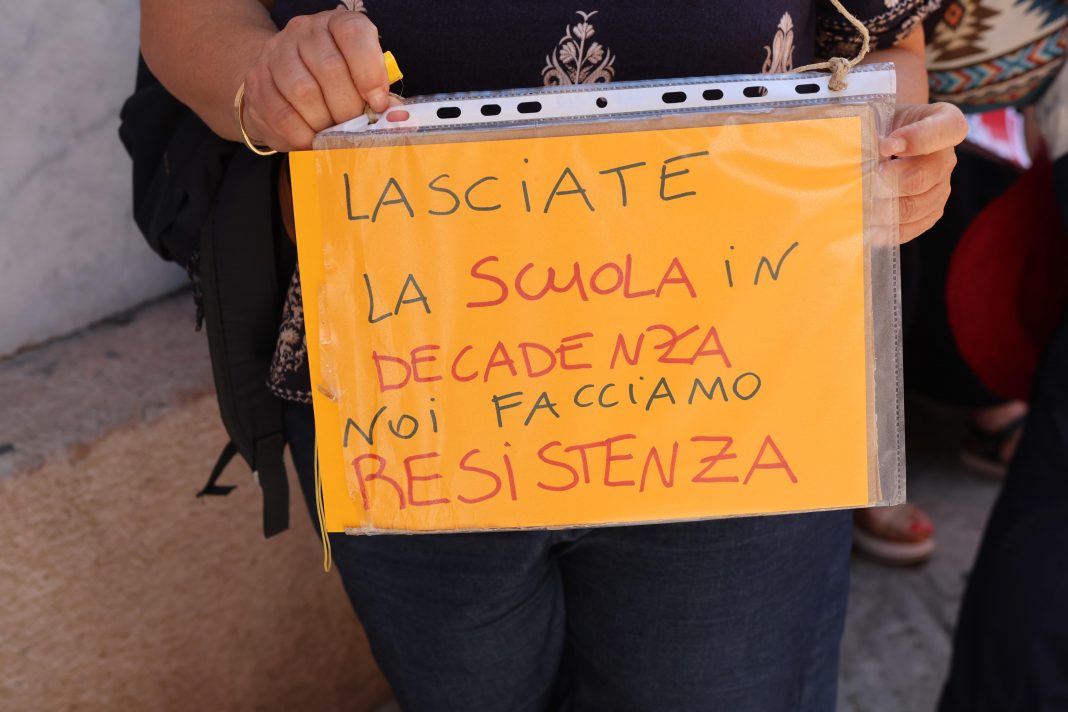 LASCIATE
LA SCUOLA IN
DECADENZA
NOI FACCIAMO
RESISTENZA